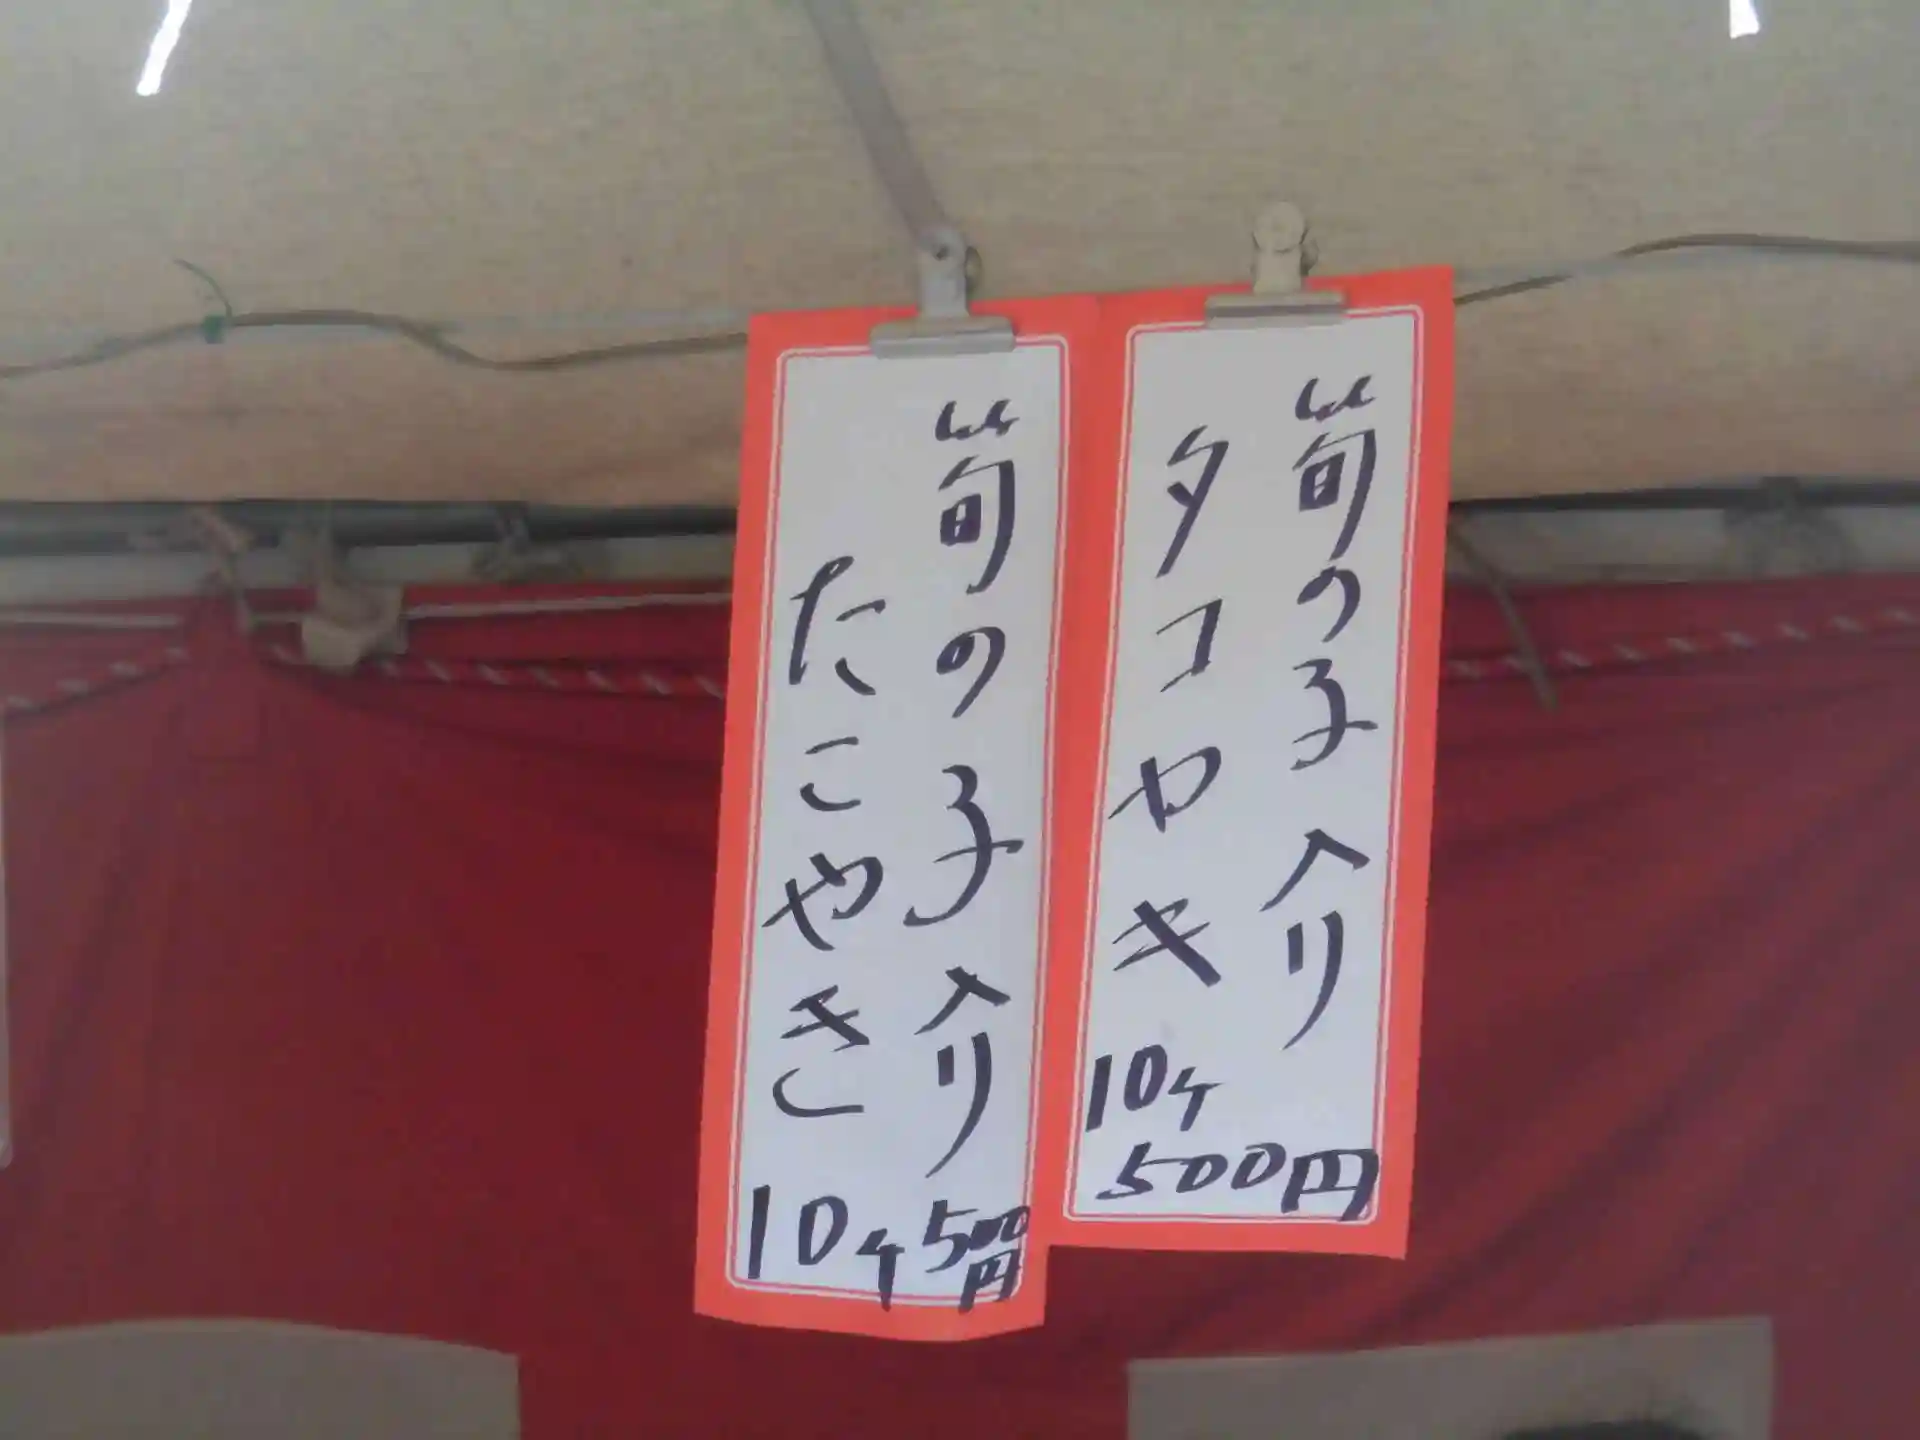 筍の子入り
タコヤキ
10ケ
500円
筍の子入り
たこやき
10ケ
500
円